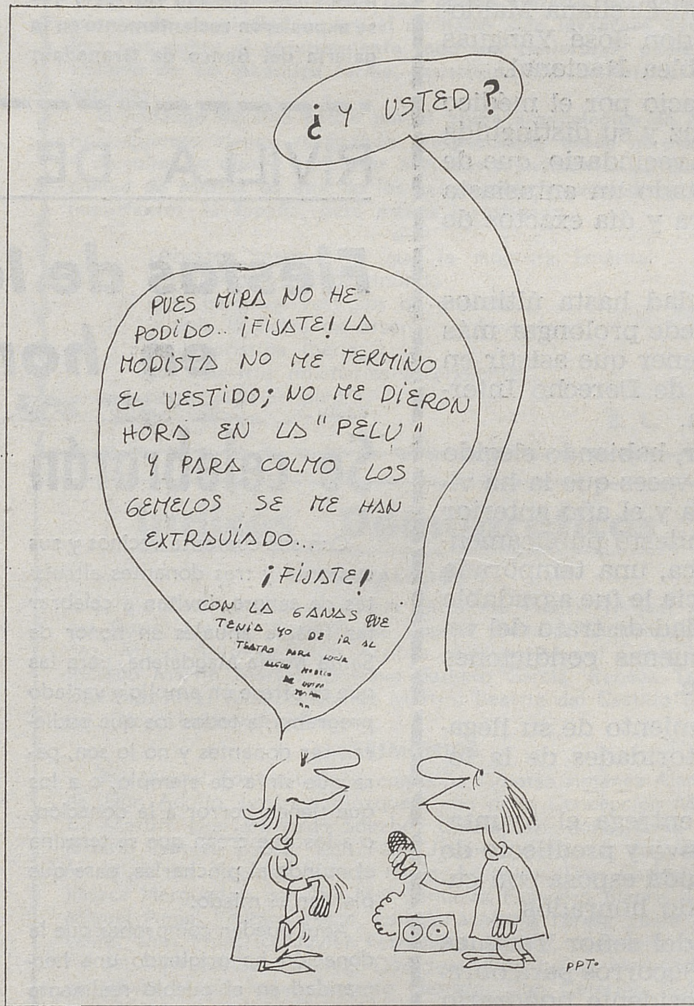 ¿Y USTED?
PUES MIRA NO HE
PODIDO.. ¡FIJATE! LA
MODISTA NO ME TERMINO
EL VESTIDO; NO ME DIERON
HORA EN LA "PELU"
Y PARA COLMO LOS
GEMELOS SE ME HAN
EXTRAVIADO...
¡FIJATE!
CON LA GANAS QUE
TENIA YO DE IR AL
TEATRO PARA LUCIR
ALGUN MODELO
DE
PPT.